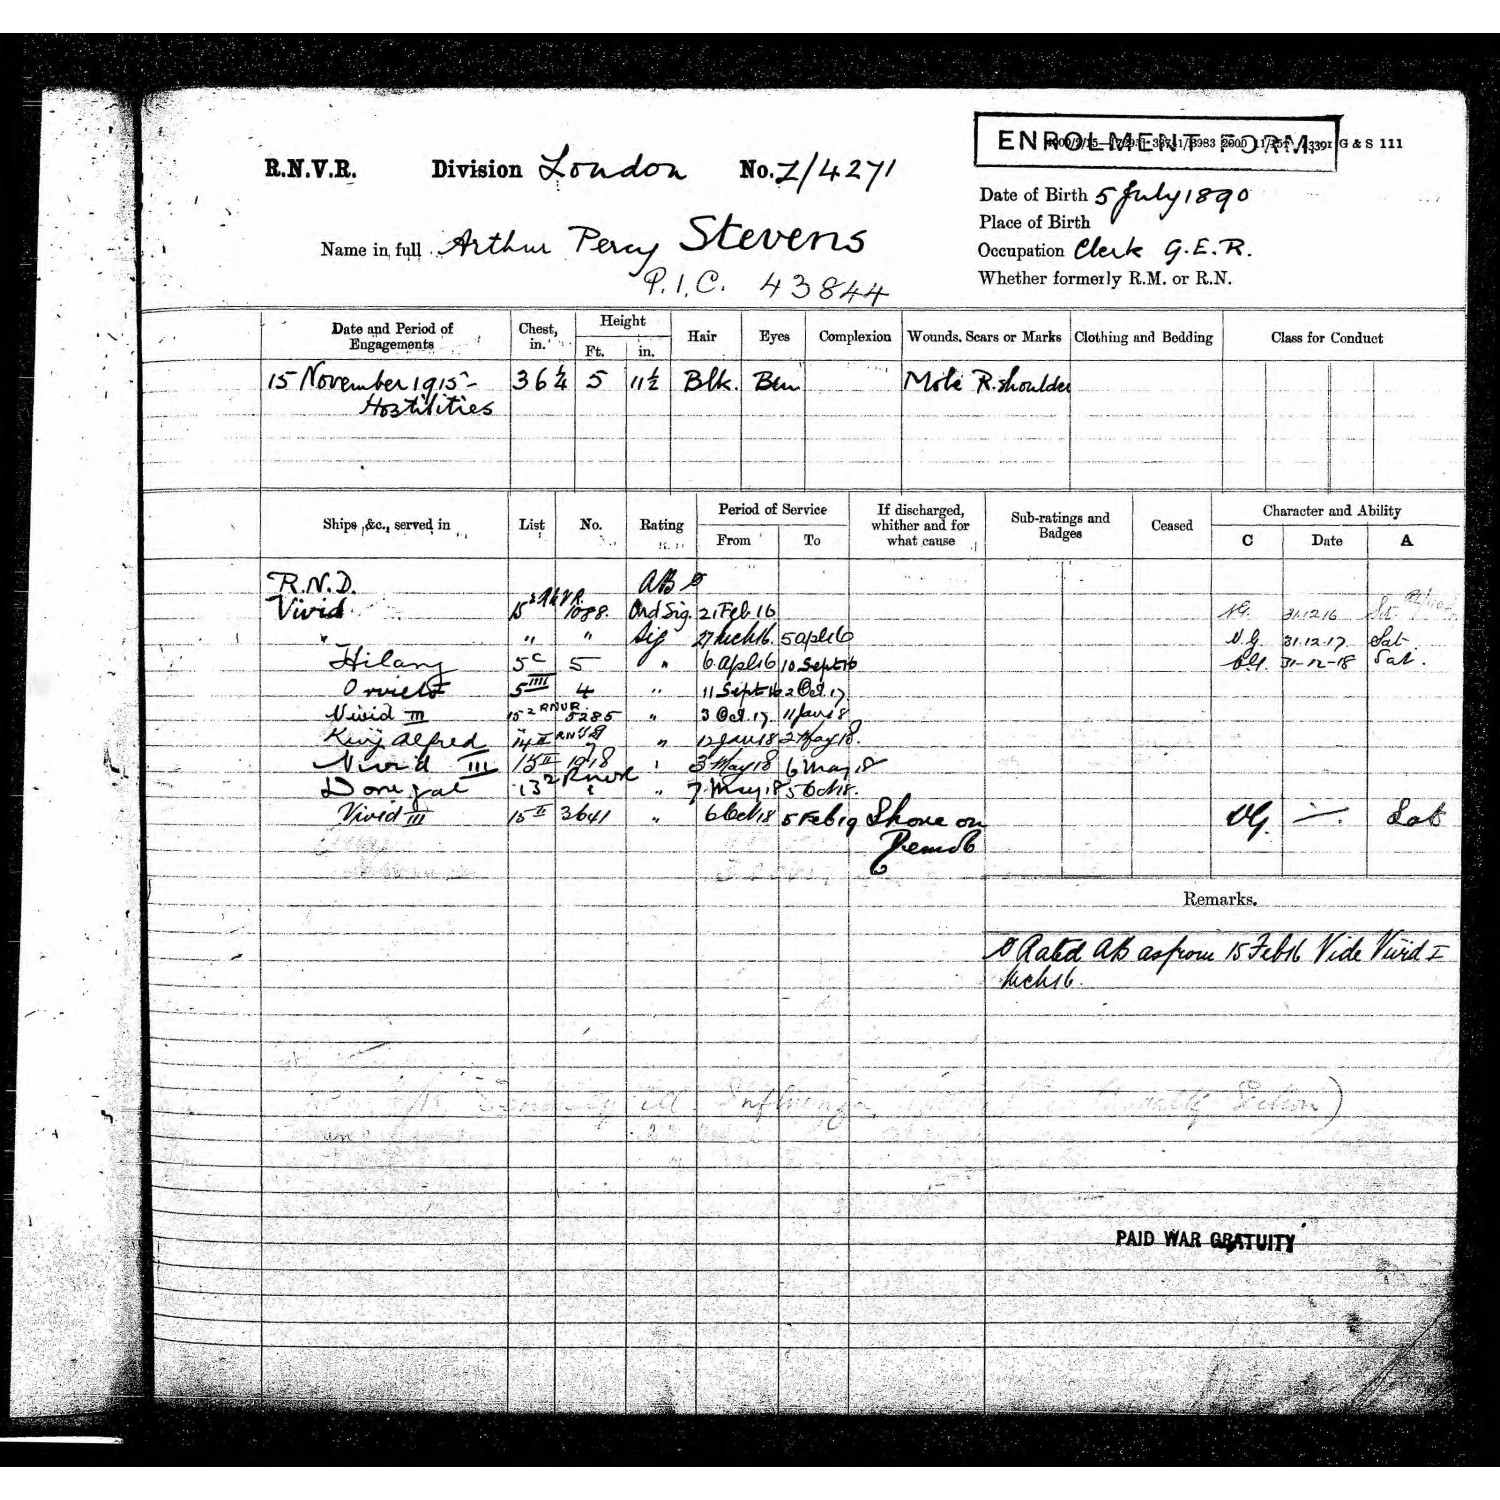 ENROLMENT FORM.
G & S 111
R.N.V.R. Division London No. Z/4271
Date of Birth 5 July 1890
Place of Birth
Name in full Arthur Percy Stevens
Occupation Clerk G.E.R.
P.I.C. 43844
Whether formerly R.M. or R.N.
Date and Period of Engagements Chest, in. Height Ft. in. Hair Eyes Complexion Wounds, Scars or Marks Clothing and Bedding Class for Conduct
15 November 1915- 36 1/4 5 11 1/2 Blk. Brn Mole R. shoulder
Hostilities
Ships, &c., served in List No. Rating Period of Service From To If discharged, whither and for what cause Sub-ratings and Badges Ceased Character and Ability C Date A
R.N.D. AB ø
Vivid 15 2 RNVR. 1088. Ord Sig. 21 Feb 16 VG. 31.12.16 Sat
" " " Sig 27 Mch 16. 5 Apl 16 V.G. 31.12.17. Sat
Hilary 5C 5 " 6 Apl 16 10 Sept 16 VG. 31-12-18 Sat.
Orvieto 5 IIII 4 " 11 Sept 16 2 Oct. 17
Vivid III 15 2 RNVR. 5285 " 3 Oct. 17. 11 Jan 18
King Alfred 14 II RNVR " 12 Jan 18 2 May 18.
Vivid III 15 II " 3 May 18 6 May 18
Donegal 13 2 RNVR " 7 May 18 5 Oct 18.
Vivid III 15 II 3641 " 6 Oct 18 5 Feb 19 Shore on VG. Sat
Demob
Remarks.
ø Rated AB as from 15 Feb 16 Vide Vivid I
Mch 16.
Influenza
Section)
PAID WAR GRATUITY